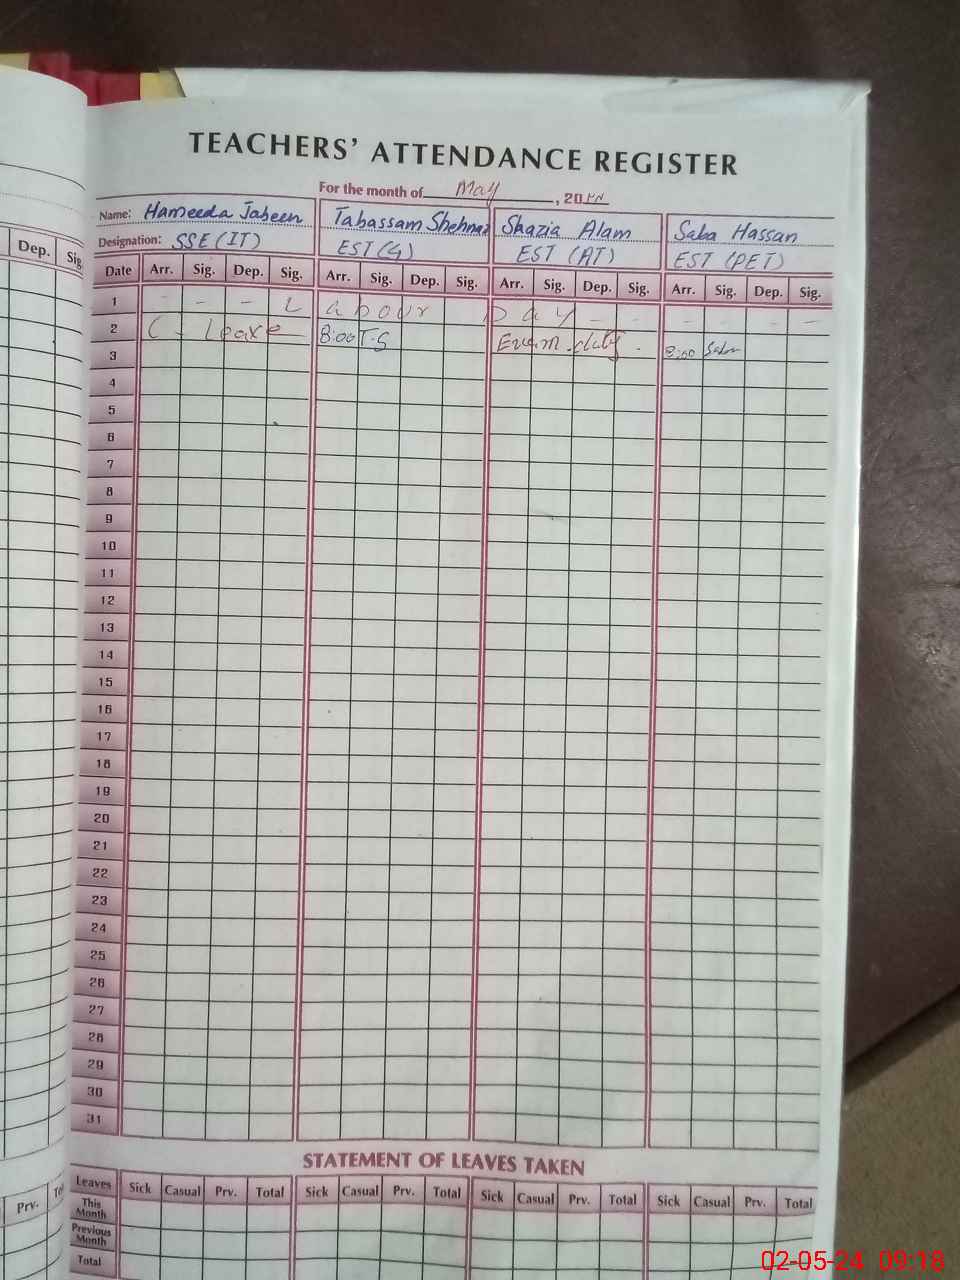 TEACHERS' ATTENDANCE REGISTER
For the month of May, 20
Name: Hameeda Jabeen Tabassam Shehnaz Shazia Alam Saba Hassan
Designation: SSE (IT) EST (G) EST (AT) EST (PET)
Dep. Sig
Date Arr. Sig. Dep. Sig. Arr. Sig. Dep. Sig. Arr. Sig. Dep. Sig. Arr. Sig. Dep. Sig.
1 - - - Labour Day - - - - - -
2 C - Leave 8:00 T.S Exam duty. 8:00 Saba
3
4
5
6
7
8
9
10
11
12
13
14
15
16
17
18
19
20
21
22
23
24
25
26
27
28
29
30
31
STATEMENT OF LEAVES TAKEN
Prv. To
Leaves Sick Casual Prv. Total Sick Casual Prv. Total Sick Casual Prv. Total Sick Casual Prv. Total
This Month
Previous Month
Total
02-05-24 09:18